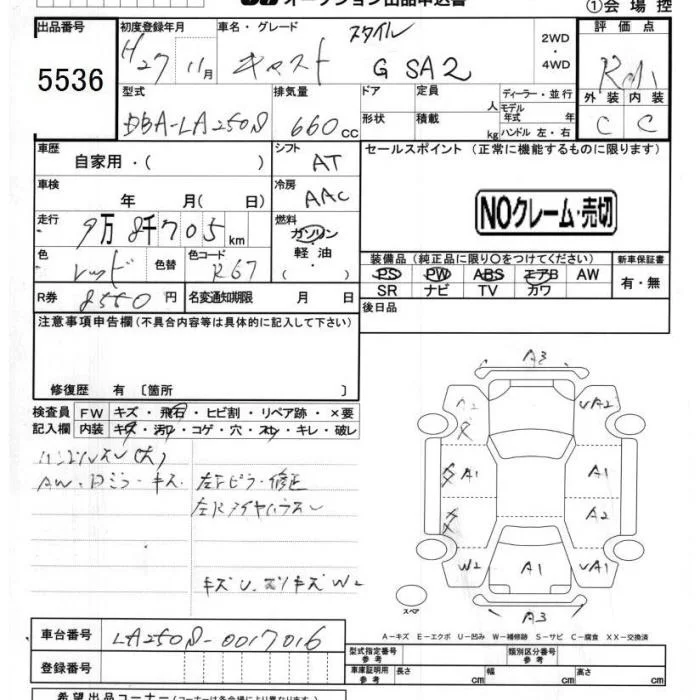 オークション出品申込書
①会場控
出品番号 初度登録年月 車名・グレード スタイル 2WD ・ 4WD 評価点
5536 H27 11月 キャスト G SA2
外装 内装
C C
型式 排気量 ドア 定員 人 ディーラー・並行
DBA-LA250S 660cc 形状 積載 kg モデル年式 年
ハンドル 左・右
車歴 自家用・( ) シフト AT セールスポイント (正常に機能するものに限ります)
車検 年 月( 日) 冷房 AAC
NOクレーム・売切
走行 9万8千705km 燃料 ガソリン・軽油・( )
色 レッド 色替 色コード R67
装備品 (純正品に限り○をつけてください) 新車保証書
PS PW ABS エアB AW 有・無
SR ナビ TV カワ
R券 8550円 名変通知期限 月 日 後日品
注意事項申告欄 (不具合内容等は具体的に記入して下さい)
修復歴 有 [箇所 ]
検査員 FW キズ・飛石・ヒビ割・リペア跡・×要
記入欄 内装 キズ・汚れ・コゲ・穴・スレ・キレ・破レ
ハンドルスレ(大)
AW・Dミラーキズ 左Fピラー修正
左Rタイヤハウス〜
キズU.スリキズW2
A3
A2 UA2
A1 A1
A2
W2 A1 UA1
A3
スペア
A-キズ E-エクボ U-凹み W-補修跡 S-サビ C-腐食 XX-交換済
車台番号 LA250S-0017016
型式指定番号 参考 類別区分番号 参考
登録番号 車庫証明用 参考 長さ cm 幅 cm 高さ cm
希望出品コーナー (コーナーは各会場により異なります)